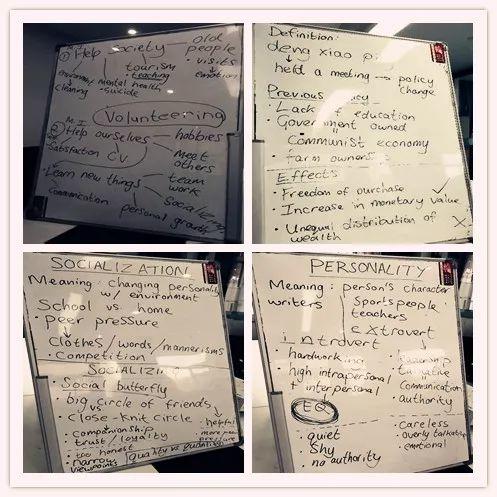 M.I
① Help Society — old people
tourism
teaching
• visits
emotion
cleaning
Mental health
• suicide
Volunteering
M.I
② Help ourselves — hobbies
Satisfaction CV
Meet others
• Learn new things — team work
Communication
personal growth
Socializing
Definition:
deng xiao p
held a meeting → policy change
Previous
• Lack of education
• Government owned
Communist economy
• farm owners
Effects
• Freedom of purchase ✓
• Increase in monetary value
• Unequal distribution of wealth X
SOCIALIZATION
Meaning: changing personality w/ environment
School vs home
• Peer pressure
clothes/words/mannerisms
• Competition
SOCIALIZING
• Social butterfly
• big circle of friends
vs
• close-knit circle
• companionship
• trust/loyalty
• helpful
• too honest
• narrow viewpoints
Quality vs quantity
PERSONALITY
Meaning: person's character
writers
Sports people
teachers
introvert
extrovert
• hardworking
• high intrapersonal + interpersonal
• talkative
• communication
• authority
EQ
• quiet
• Shy
• no authority
• careless
• overly talkative
• emotional